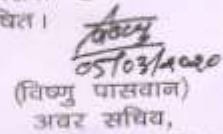 षित।
05/03/2020
(विष्णु पासवान)
अवर सचिव,